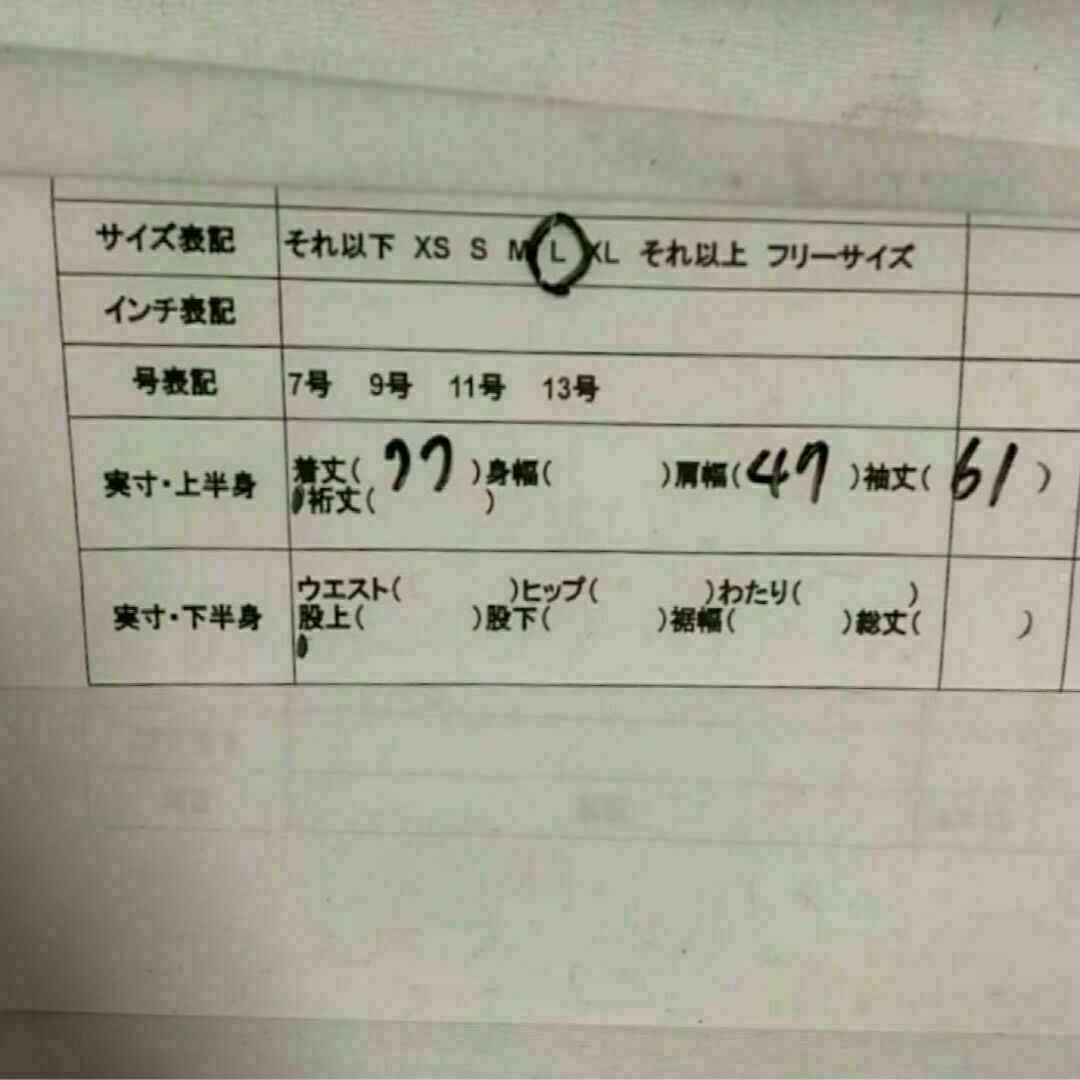 サイズ表記 それ以下 XS S M L XL それ以上 フリーサイズ
インチ表記
号表記 7号 9号 11号 13号
実寸・上半身 着丈( 77 )身幅( )肩幅( 47 )袖丈( 61 )
裄丈( )
実寸・下半身 ウエスト( )ヒップ( )わたり( )
股上( )股下( )裾幅( )総丈( )